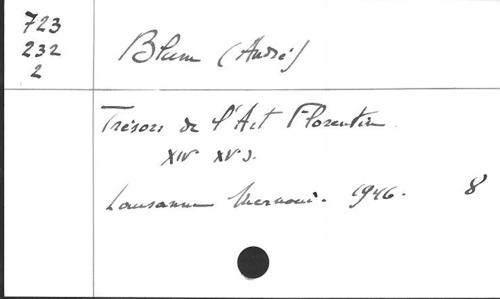 723
232
2
Blum (André)
Trésors de l'Art Florentin
XIV XV s.
Lausanne Mermoud. 1946. 8